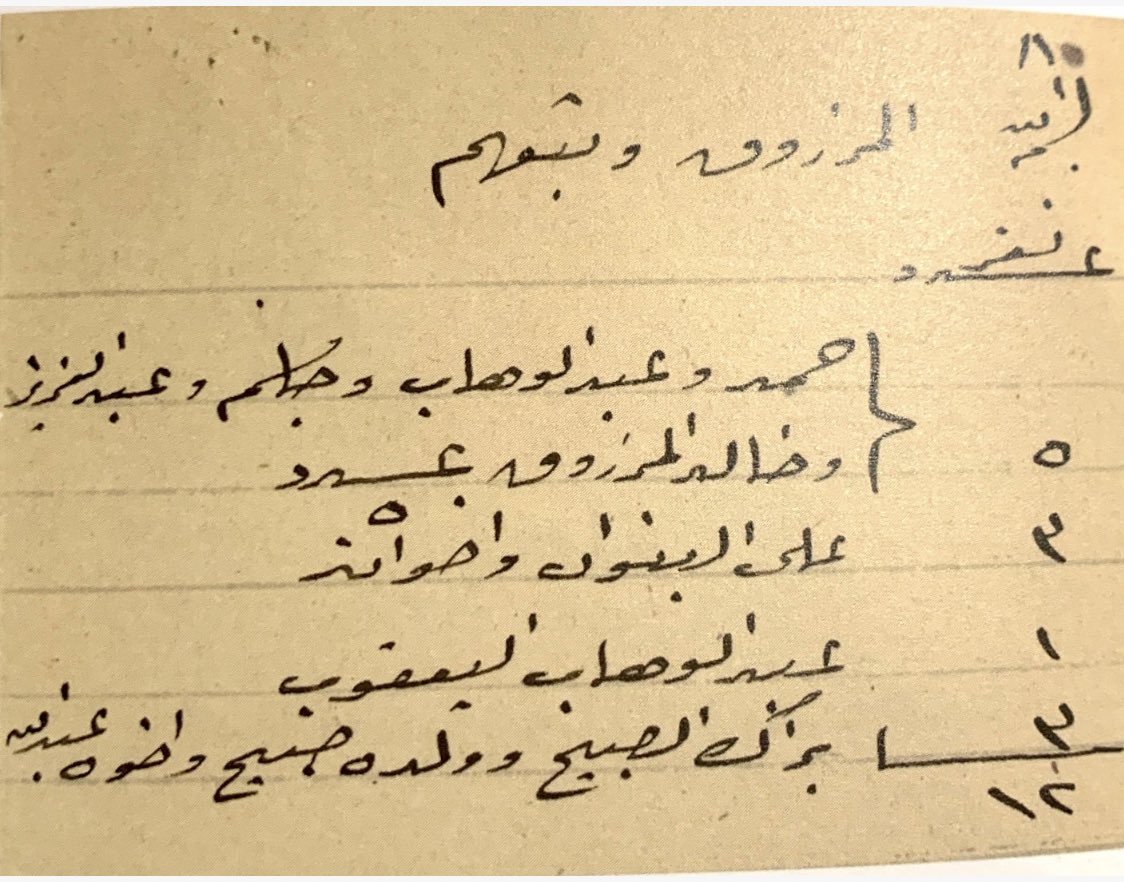 ١٨
المرزوق ويتبعهم
عدد نفر
احمد و عبدالوهاب وجاسم و عبدالعزيز
٥ وخالد المرزوق عدد
٥
٣ على البنوان واخوانه
١ عبدالوهاب اليعقوب
٣ براك الصبيح وولده صبيح واخوه عبدالله
١٢